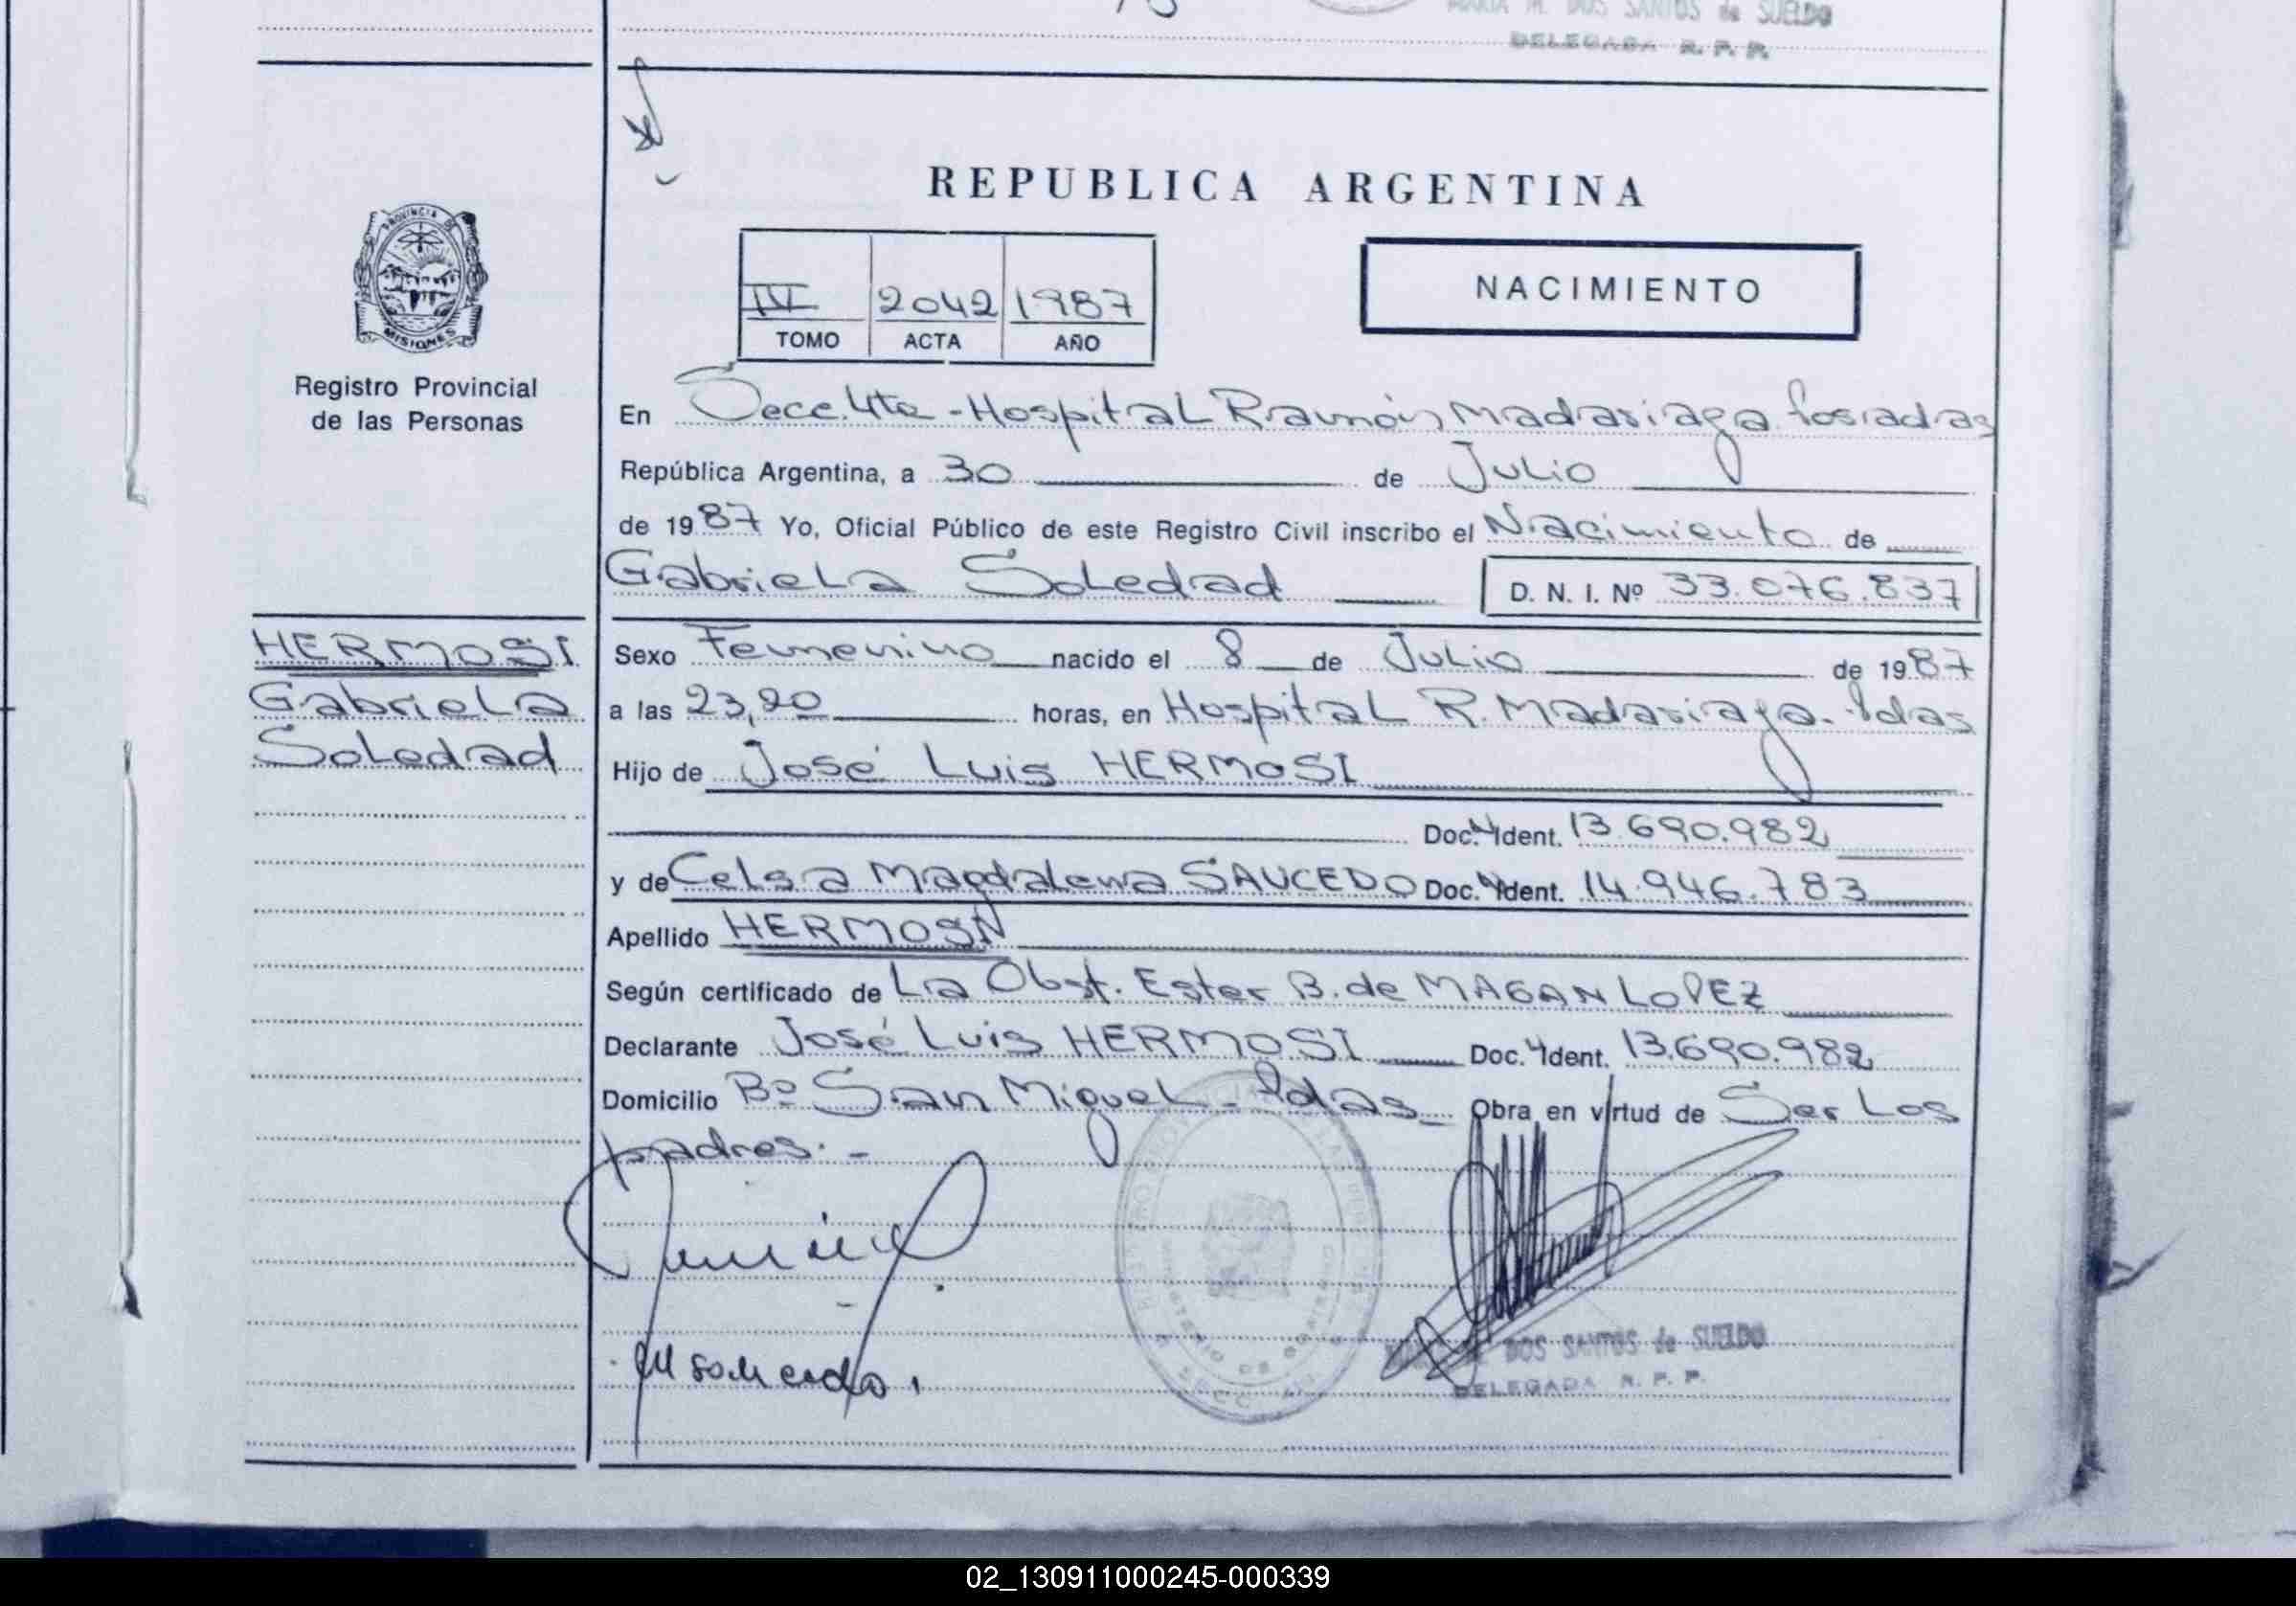 MARIA M. DOS SANTOS de SUELDO
DELEGADA R. P. P.
REPUBLICA ARGENTINA
PROVINCIA DE
MISIONES
Registro Provincial
de las Personas
IV 2042 1987
TOMO ACTA AÑO
NACIMIENTO
En Secc. 4ta - Hospital Ramón Madariaga Posadas
República Argentina, a 30 de Julio
de 1987 Yo, Oficial Público de este Registro Civil inscribo el Nacimiento de
Gabriela Soledad D. N. I. Nº 33.076.837
HERMOSI
Gabriela
Soledad
Sexo Femenino nacido el 8 de Julio de 1987
a las 23,20 horas, en Hospital R. Madariaga - Pdas
Hijo de José Luis HERMOSI
Doc. Ident. 13.690.982
y de Celsa Magdalena SAUCEDO Doc. Ident. 14.946.783
Apellido HERMOSI
Según certificado de La Obst. Ester B. de MAGAN LOPEZ
Declarante José Luis HERMOSI Doc. Ident. 13.690.982
Domicilio Bº San Miguel - Pdas Obra en virtud de Ser Los
padres. -
DOS SANTOS de SUELDO
DELEGADA R. P. P.
02_130911000245-000339